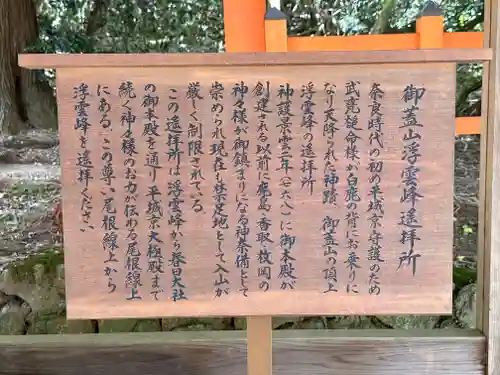 御蓋山浮雲峰遥拝所
奈良時代の初め平城京守護のため
武甕槌命様が白鹿の背にお乗りに
なり天降られた神蹟、御蓋山の頂上
浮雲峰の遥拝所
神護景雲二年(七六八)に御本殿が
創建される以前に鹿島・香取・枚岡の
神々様が御鎮まりになる神奈備として
崇められ現在も禁足地として入山が
厳しく制限されている
この遥拝所は浮雲峰から春日大社
の御本殿を通り、平城京大極殿まで
続く神々様のお力が伝わる尾根線上
にある、この尊い尾根線上から
浮雲峰を遥拝ください